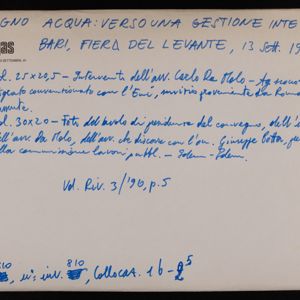 GNO ACQUA: VERSO UNA GESTIONE INTE
BARI, FIERA DEL LEVANTE, 13 Sett. 19
25x20,5 – Intervento dell'avv. Carlo Da Molo – Ag
convenzionato con l'Eni, servizio proveniente da Roma
30x20 – Foto del tavolo di presidenza del convegno, dell'i
dell'avv. Da Molo, dell'avv. che discorre con l'on. Giuseppe Botta,
commissione lavori pubbl. – Idem – Idem.
Vol. Riv. 3/'90, p. 5
810
inv. 810, Collocaz. 16 – 5